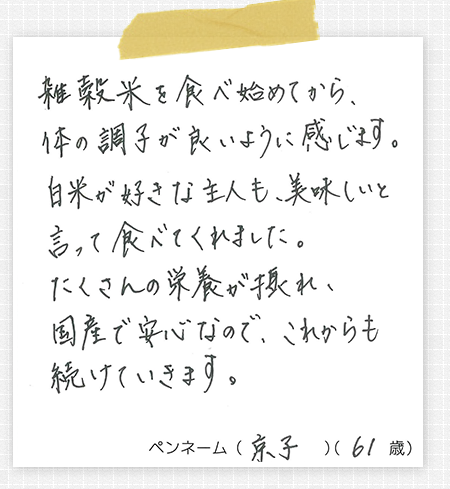 雑穀米を食べ始めてから、
体の調子が良いように感じます。
白米が好きな主人も、美味しいと
言って食べてくれました。
たくさんの栄養が摂れ、
国産で安心なので、これからも
続けていきます。
ペンネーム（京子　）（61歳）